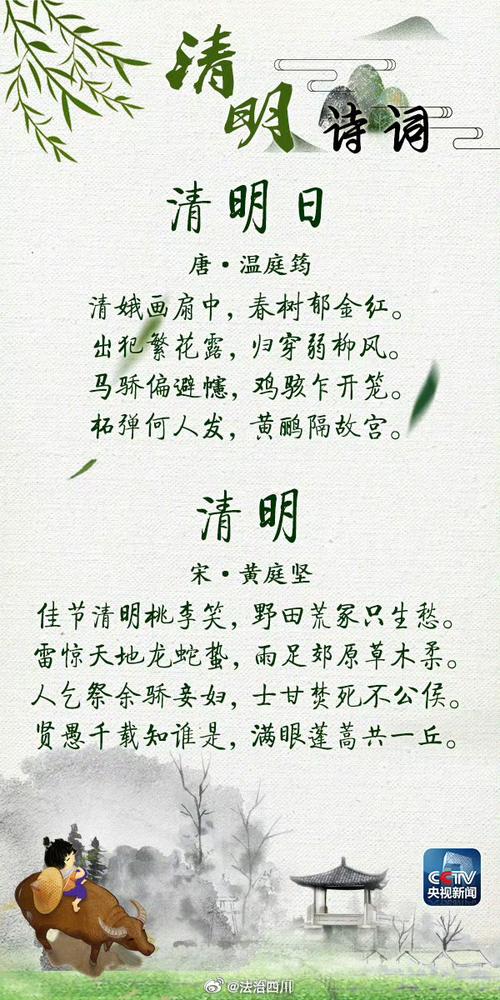 清明诗词
清明日
唐·温庭筠
清娥画扇中，春树郁金红。
出犯繁花露，归穿弱柳风。
马骄偏避幰，鸡骇乍开笼。
柘弹何人发，黄鹂隔故宫。
清明
宋·黄庭坚
佳节清明桃李笑，野田荒冢只生愁。
雷惊天地龙蛇蛰，雨足郊原草木柔。
人乞祭余骄妾妇，士甘焚死不公侯。
贤愚千载知谁是，满眼蓬蒿共一丘。
CCTV
央视新闻
@法治四川